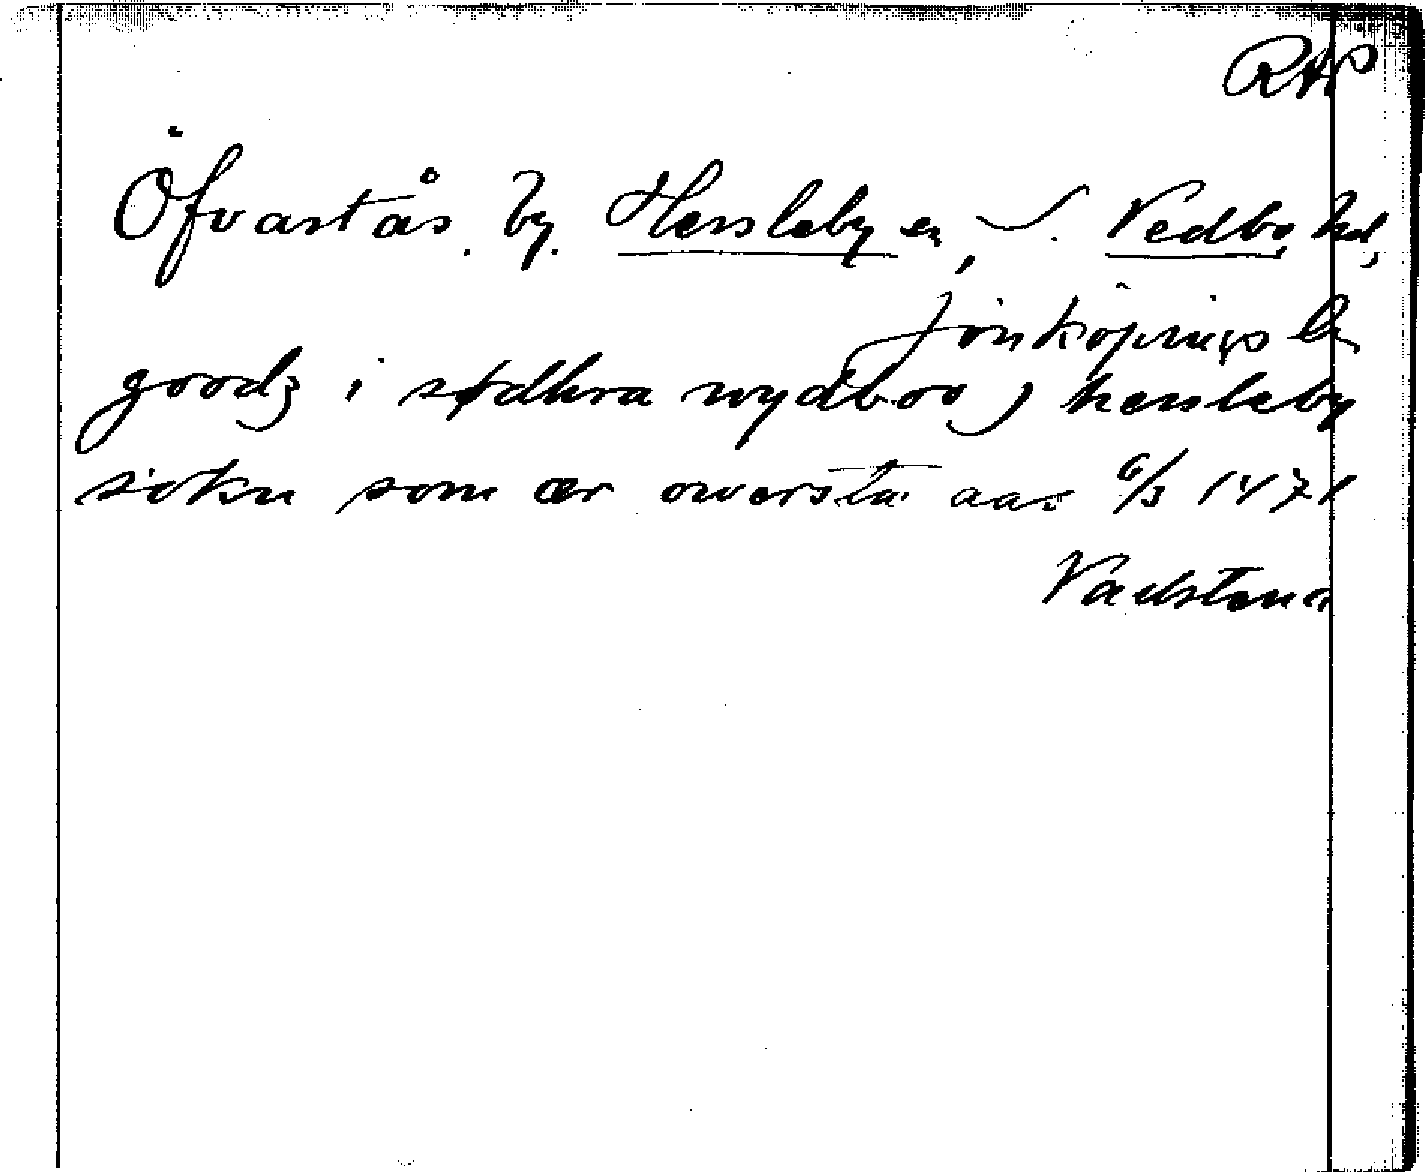 RAP
Öfvastås. by. Hessleby sn, S. Vedbo hd,
Jönköpings ln
goodz i sødhra wydboo j hessleby
sokn som ær owersta aas 6/3 1471
Vadstena